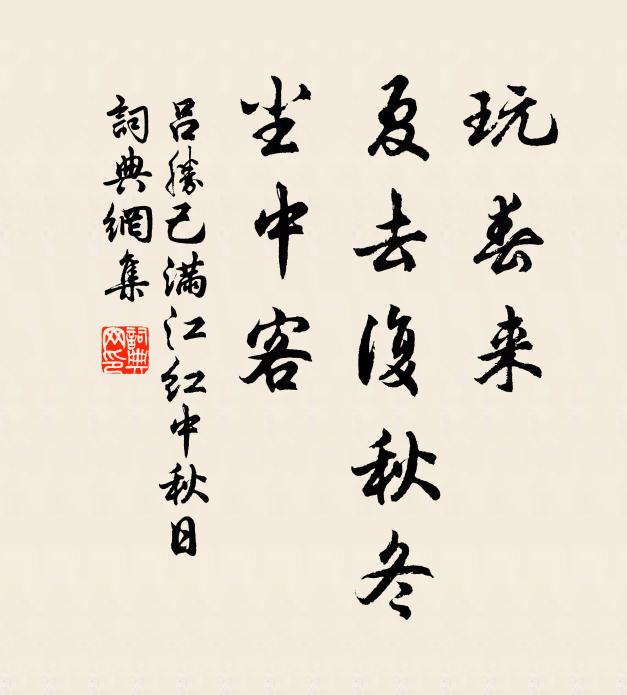 玩春来
夏去復秋冬
尘中客
吕勝己满江红中秋日
詞典網集
詞典网印